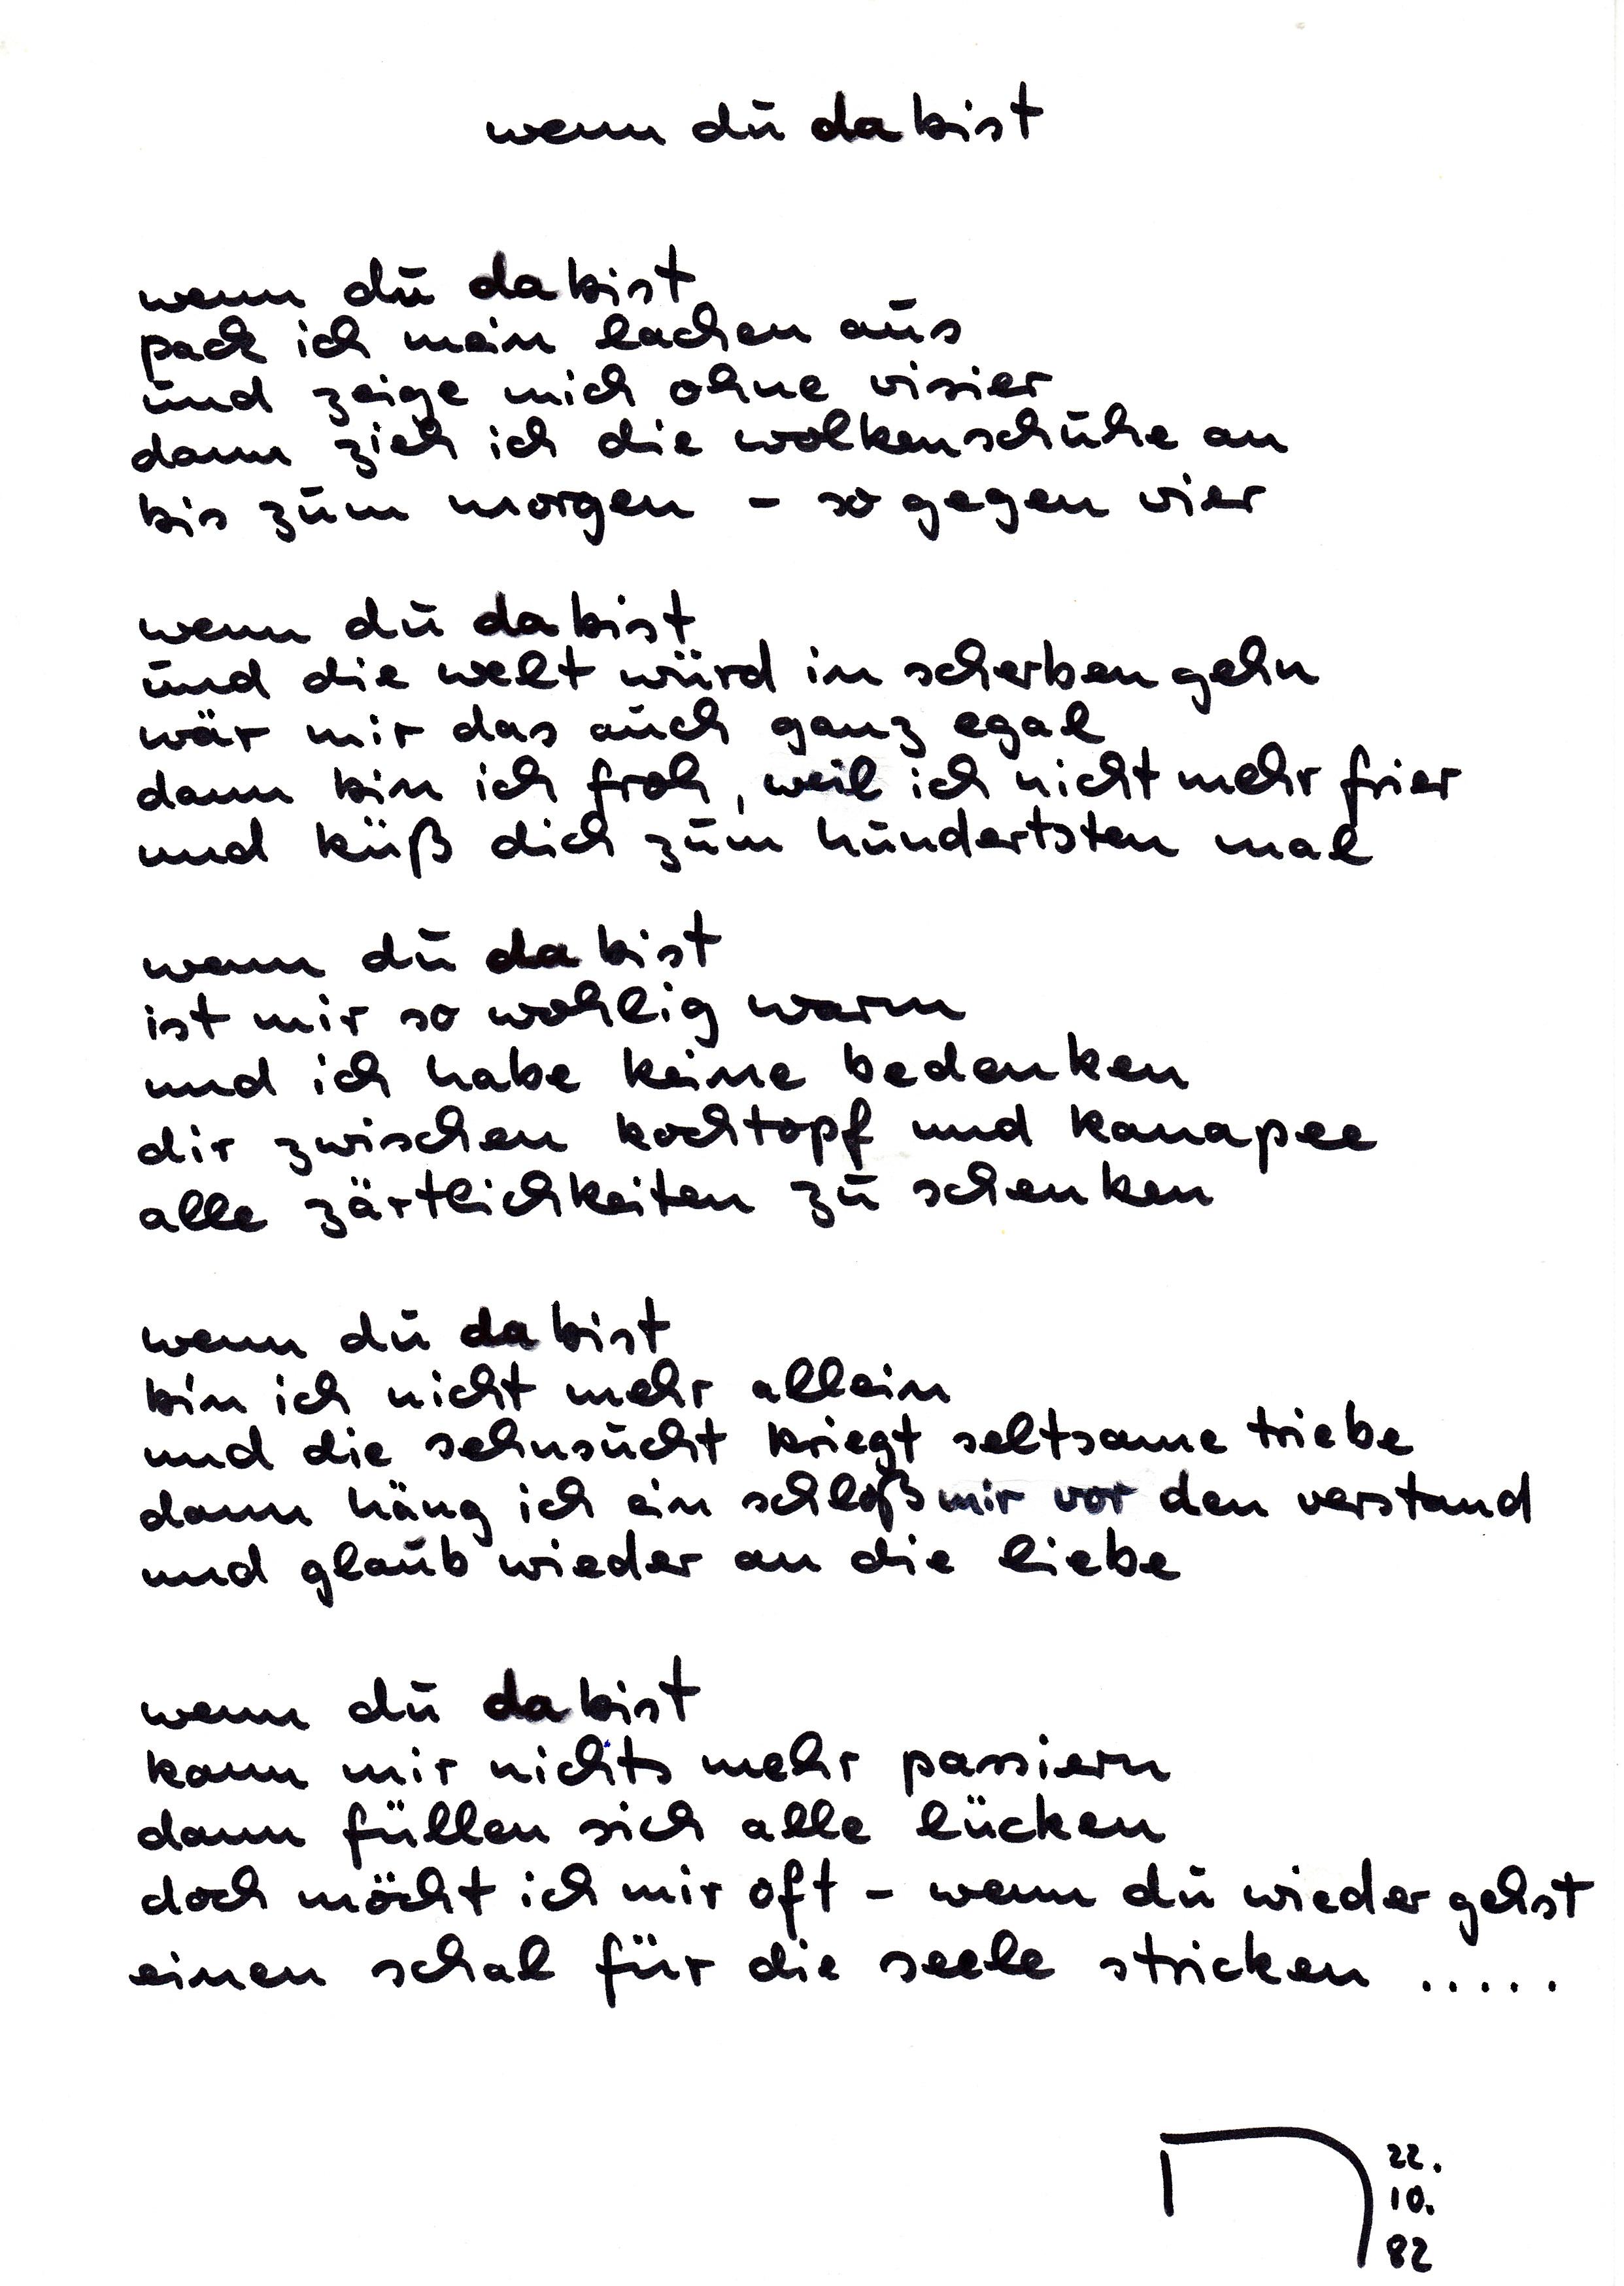 wenn du da bist
wenn du da bist
pack ich mein lachen aus
und zeige mich ohne visier
dann zieh ich die wolkenschuhe an
bis zum morgen – so gegen vier
wenn du da bist
und die welt würd in scherben gehn
wär mir das auch ganz egal
dann bin ich froh, weil ich nicht mehr frier
und küß dich zum hundertsten mal
wenn du da bist
ist mir so wohlig warm
und ich habe keine bedenken
dir zwischen kochtopf und kanapee
alle zärtlichkeiten zu schenken
wenn du da bist
bin ich nicht mehr allein
und die sehnsucht kriegt seltsame triebe
dann häng ich ein schloß mir vor den verstand
und glaub wieder an die liebe
wenn du da bist
kann mir nichts mehr passiern
dann füllen sich alle lücken
doch möcht ich mir oft – wenn du wieder gehst
einen schal für die seele stricken .....
22.
10.
82